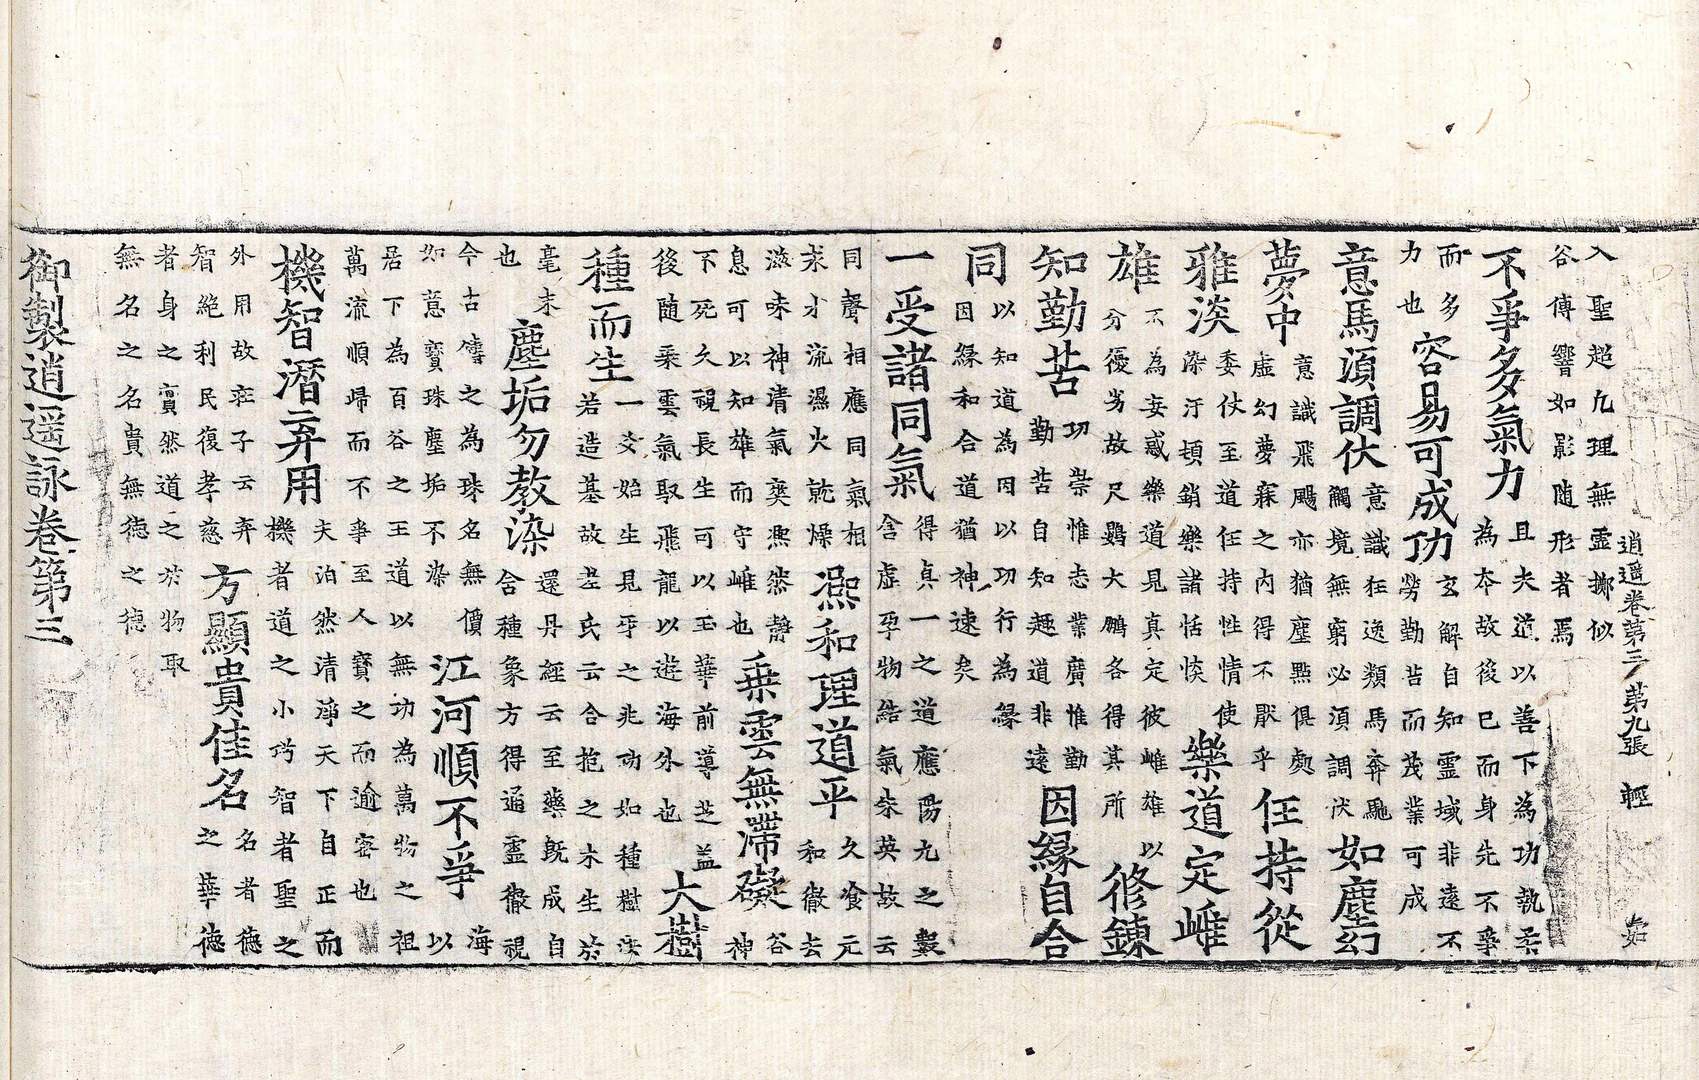 逍遥卷第三　第九張　輕　茹
入聖超凡理無靈擲似
谷傳響如影随形者焉
不爭多氣力
且夫道以善下為功執柔
為本故後已而身先不爭
而多
力也
容易可成功
玄解自知靈域非遠不
勞勤苦而茂業可成
意馬湏調伏
意識狂逸類馬奔馳
觸境無窮必湏調伏
如塵幻
夢中
意識飛颺亦猶塵點俱䖏
虛幻夢寐之內得不厭乎
任持從
雅淡
委仗至道任持性情使
染汙頓銷樂諸恬惔
樂道定雌
雄
不為妄惑樂道見真定彼雌雄以
分優劣故尺鷃大鵬各得其所
修鍊
知勤苦
功崇惟志業廣惟勤
勤苦自知趣道非遠
因緣自合
同
以知道為因以功行為緣
因緣和合道猶神速矣
一受諸同氣
得真一之道應陽九之製
含虛孕物結氣朱英故云
同聲相應同氣相
求水流濕火乾燥
凞和理道平
久飡元
和徹去
滋味神清氣爽凞然罄
息可以知雄而守雌也
乗雲無滯礙
谷
神
不死久視長生可以玉華前導芝蓋
後随乗雲氣馭飛龍以遊海外也
大樹
種而生
一爻始生見乎之兆功如種樹浹
若造基故老氏云合抱之木生於
毫末
也
塵垢勿教染
還丹經云至藥旣成自
含種象方得通靈徹視
今古傳之為珠名無價
如意寶珠塵垢不染
江河順不爭
海
以
居下為百谷之王道以無功為萬物之祖
萬流順歸而不爭至人寶之而逾密也
機智潛弃用
夫泊然清凈天下自正而
機者道之小巧智者聖之
外用故莊子云弃
智絕利民復孝慈
方顯貴佳名
名者德
之華德
者身之賓然道之於物取
無名之名貴無德之德
御製逍遥詠卷第三